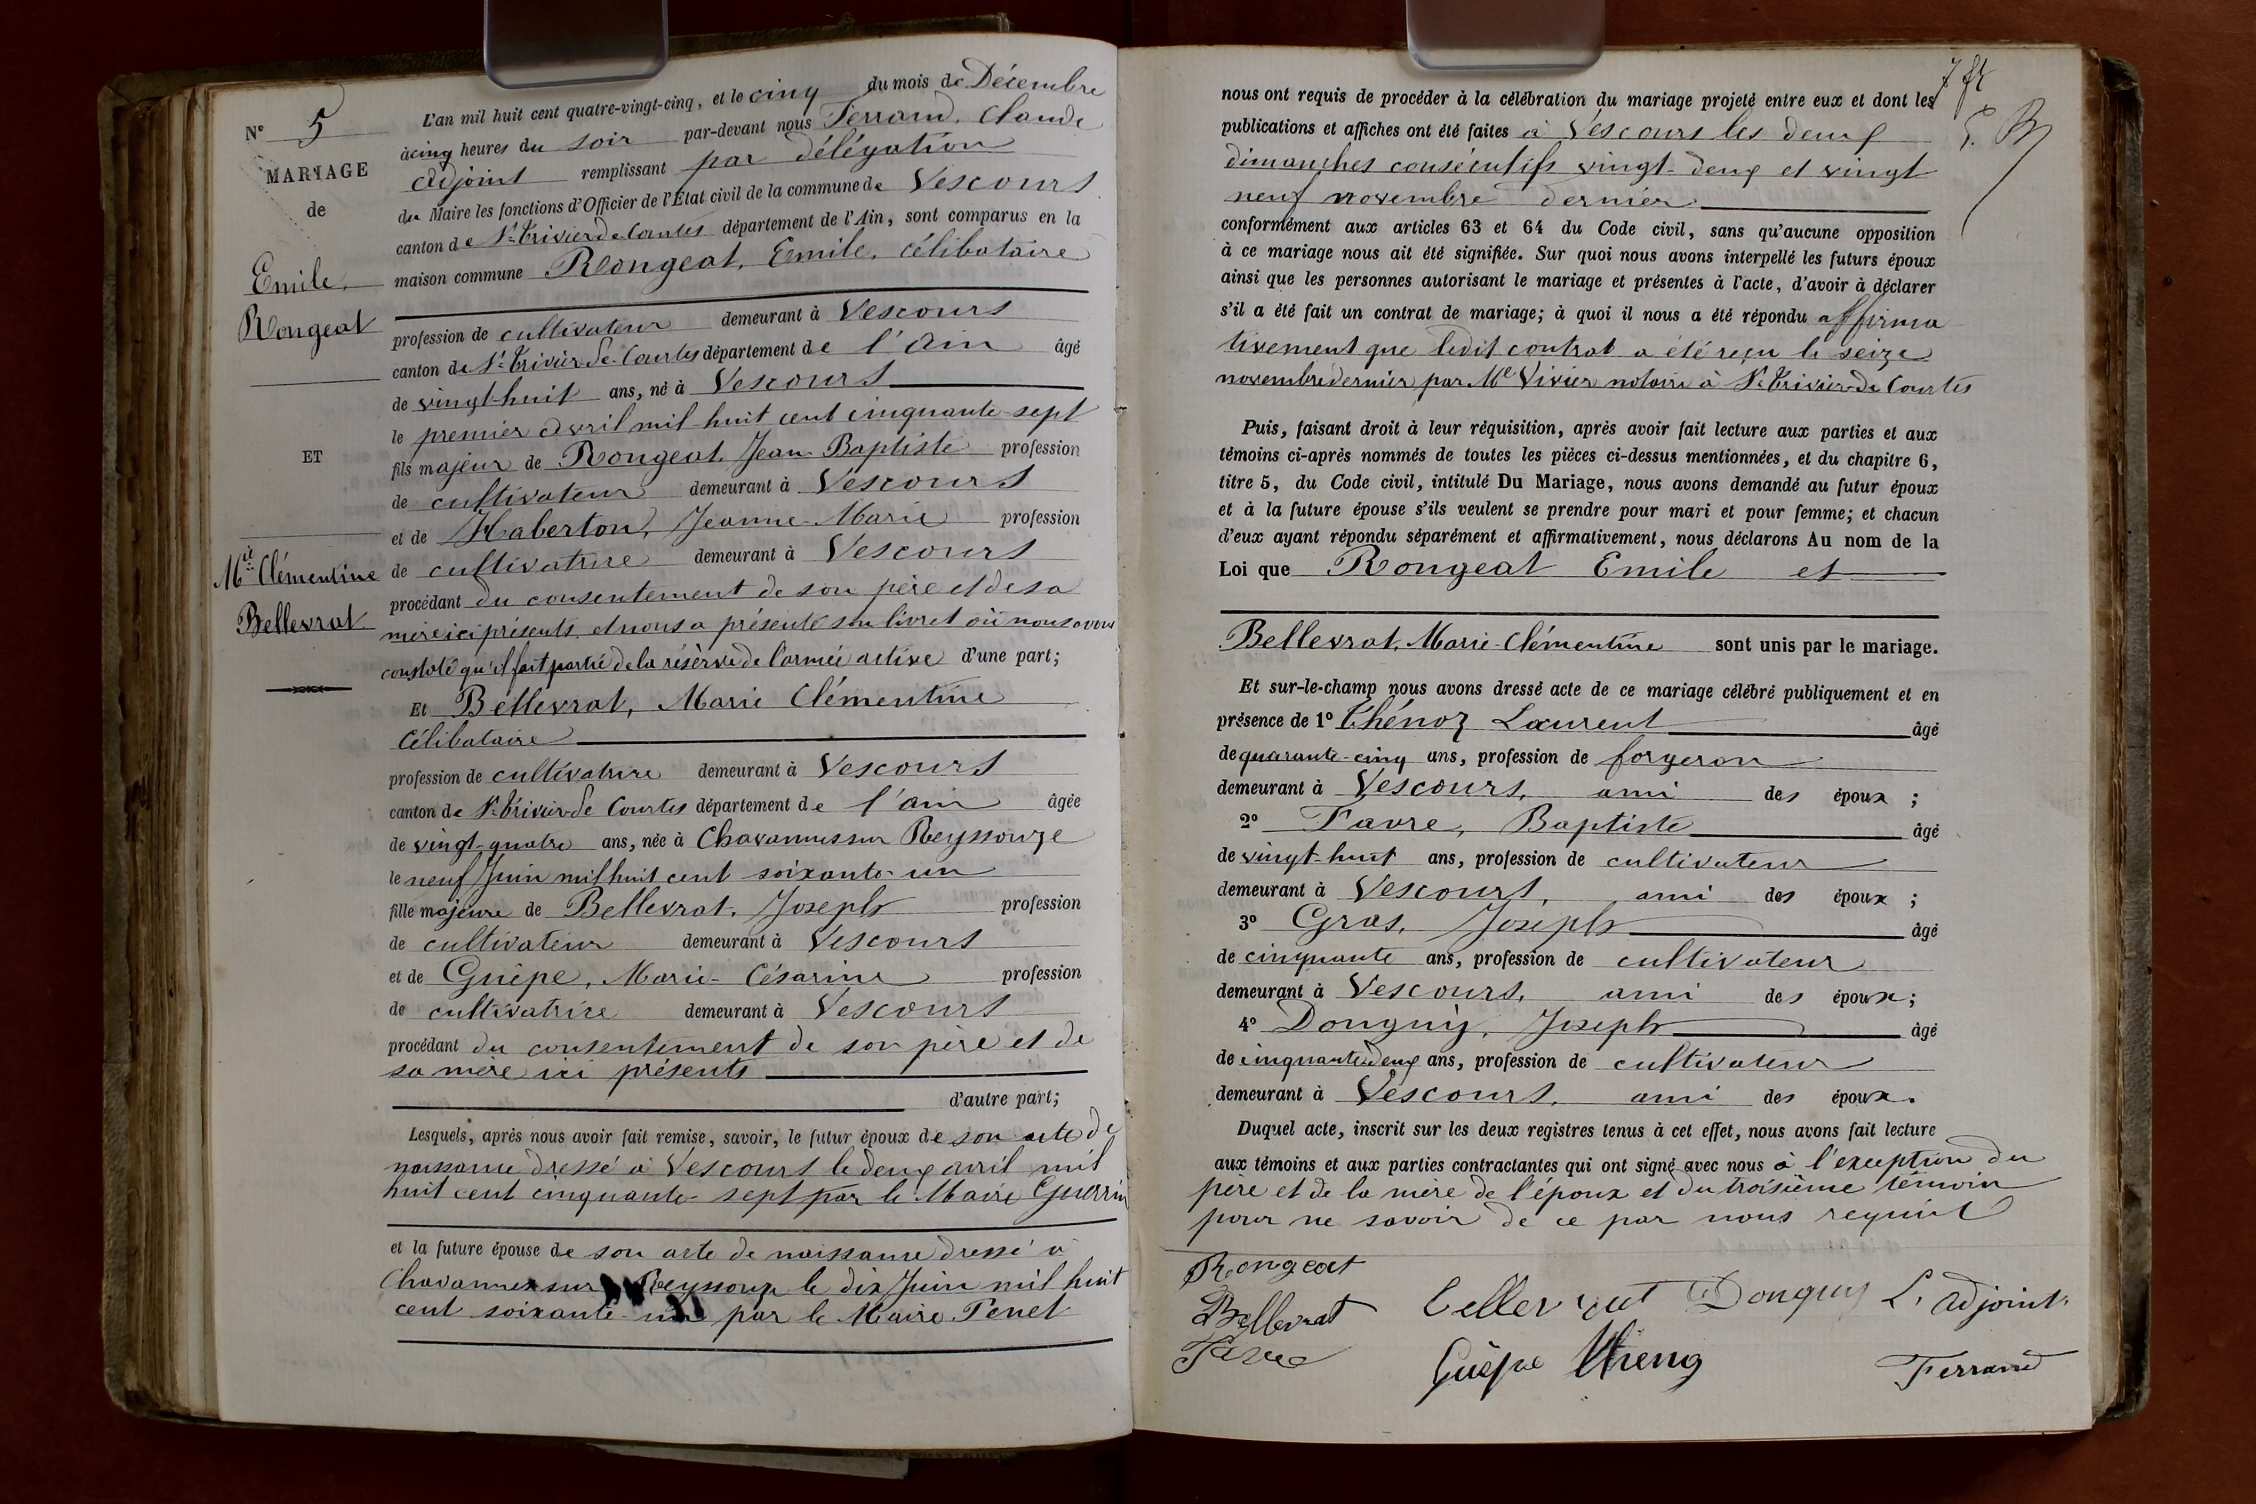 N° 5
MARIAGE
de
Emile
Rongeat
ET
Mie Clémentine
Bellevrat
L'an mil huit cent quatre-vingt-cinq, et le cinq du mois de Décembre
à cinq heures du soir par-devant nous Ferrand, Claude
adjoint remplissant par délégation
du Maire les fonctions d'Officier de l'État civil de la commune de Vescours
canton de St Trivier de Courtes département de l'Ain, sont comparus en la
maison commune Rongeat, Emile, célibataire
profession de cultivateur demeurant à Vescours
canton de St Trivier de Courtes département de l'Ain âgé
de vingt-huit ans, né à Vescours
le premier avril mil huit cent cinquante-sept
fils majeur de Rongeat, Jean-Baptiste profession
de cultivateur demeurant à Vescours
et de Haberton, Jeanne-Marie profession
de cultivatrice demeurant à Vescours
procédant du consentement de son père et de sa
mère ici présents, et nous a présenté son livret où nous avons
constaté qu'il fait partie de la réserve de l'armée active d'une part;
Et Bellevrat, Marie Clémentine
célibataire
profession de cultivatrice demeurant à Vescours
canton de St Trivier de Courtes département de l'Ain âgée
de vingt-quatre ans, née à Chavannes sur Reyssouze
le neuf Juin mil huit cent soixante-un
fille majeure de Bellevrat, Joseph profession
de cultivateur demeurant à Vescours
et de Guêpe, Marie-Césarine profession
de cultivatrice demeurant à Vescours
procédant du consentement de son père et de
sa mère ici présents
d'autre part;
Lesquels, après nous avoir fait remise, savoir, le futur époux de son acte de
naissance dressé à Vescours le deux avril mil
huit cent cinquante-sept par le Maire Guerrin
et la future épouse de son acte de naissance dressé à
Chavannes sur Reyssouze le dix Juin mil huit
cent soixante-un par le Maire Penet
7 ft
nous ont requis de procéder à la célébration du mariage projeté entre eux et dont les
publications et affiches ont été faites à Vescours les deux
dimanches consécutifs vingt-deux et vingt
neuf novembre dernier
conformément aux articles 63 et 64 du Code civil, sans qu'aucune opposition
à ce mariage nous ait été signifiée. Sur quoi nous avons interpellé les futurs époux
ainsi que les personnes autorisant le mariage et présentes à l'acte, d'avoir à déclarer
s'il a été fait un contrat de mariage; à quoi il nous a été répondu affirma
tivement que ledit contrat a été reçu le seize
novembre dernier par Me Vivier notaire à St Trivier de Courtes
Puis, faisant droit à leur réquisition, après avoir fait lecture aux parties et aux
témoins ci-après nommés de toutes les pièces ci-dessus mentionnées, et du chapitre 6,
titre 5, du Code civil, intitulé Du Mariage, nous avons demandé au futur époux
et à la future épouse s'ils veulent se prendre pour mari et pour femme; et chacun
d'eux ayant répondu séparément et affirmativement, nous déclarons Au nom de la
Loi que Rongeat Emile et
Bellevrat, Marie-Clémentine sont unis par le mariage.
Et sur-le-champ nous avons dressé acte de ce mariage célébré publiquement et en
présence de 1° Thénoz Laurent âgé
de quarante-cinq ans, profession de forgeron
demeurant à Vescours, ami des époux ;
2° Favre, Baptiste âgé
de vingt-huit ans, profession de cultivateur
demeurant à Vescours, ami des époux ;
3° Gras, Joseph âgé
de cinquante ans, profession de cultivateur
demeurant à Vescours, ami des époux;
4° Donguy, Joseph âgé
de cinquante deux ans, profession de cultivateur
demeurant à Vescours, ami des époux.
Duquel acte, inscrit sur les deux registres tenus à cet effet, nous avons fait lecture
aux témoins et aux parties contractantes qui ont signé avec nous à l'exception du
père et de la mère de l'époux et du troisième témoin
pour ne savoir de ce par nous requis
Rongeat
Bellevrat Donguy L'adjoint
Favre
Guêpe Ferrand